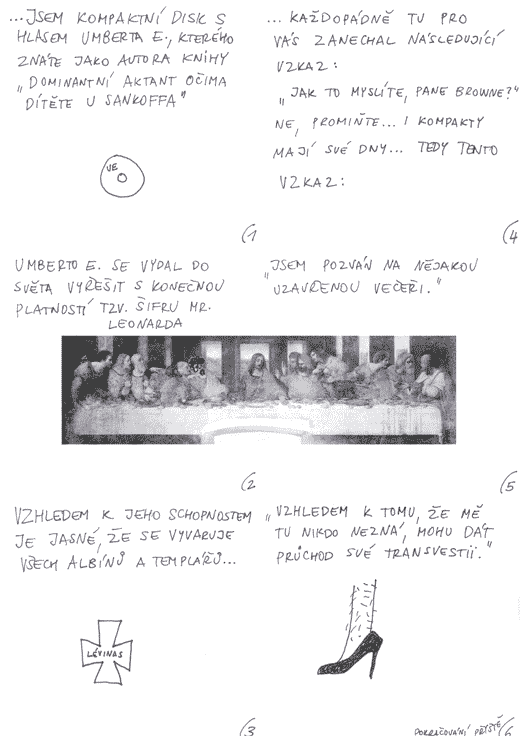 ...JSEM KOMPAKTNÍ DISK S
HLASEM UMBERTA E., KTERÉHO
ZNÁTE JAKO AUTORA KNIHY
„DOMINANTNÍ AKTANT OČIMA
DÍTĚTE U SANKOFFA"
UE
(1
UMBERTO E. SE VYDAL DO
SVĚTA VYŘEŠIT S KONEČNOU
PLATNOSTÍ TZV. ŠIFRU MR.
LEONARDA
(2
VZHLEDEM K JEHO SCHOPNOSTEM
JE JASNÉ, ŽE SE VYVARUJE
VŠECH ALBÍNŮ A TEMPLÁŘŮ...
LÉVINAS
(3
... KAŽDOPÁDNĚ TU PRO
VÁS ZANECHAL NÁSLEDUJÍCÍ
VZKAZ:
„JAK TO MYSLÍTE, PANE BROWNE?"
NE, PROMIŇTE... I KOMPAKTY
MAJÍ SVÉ DNY... TEDY TENTO
VZKAZ:
(4
„JSEM POZVÁN NA NĚJAKOU
UZAVŘENOU VEČEŘI."
(5
„VZHLEDEM K TOMU, ŽE MĚ
TU NIKDO NEZNÁ, MOHU DÁT
PRŮCHOD SVÉ TRANSVESTII."
POKRAČOVÁNÍ PŘÍŠTĚ
(6